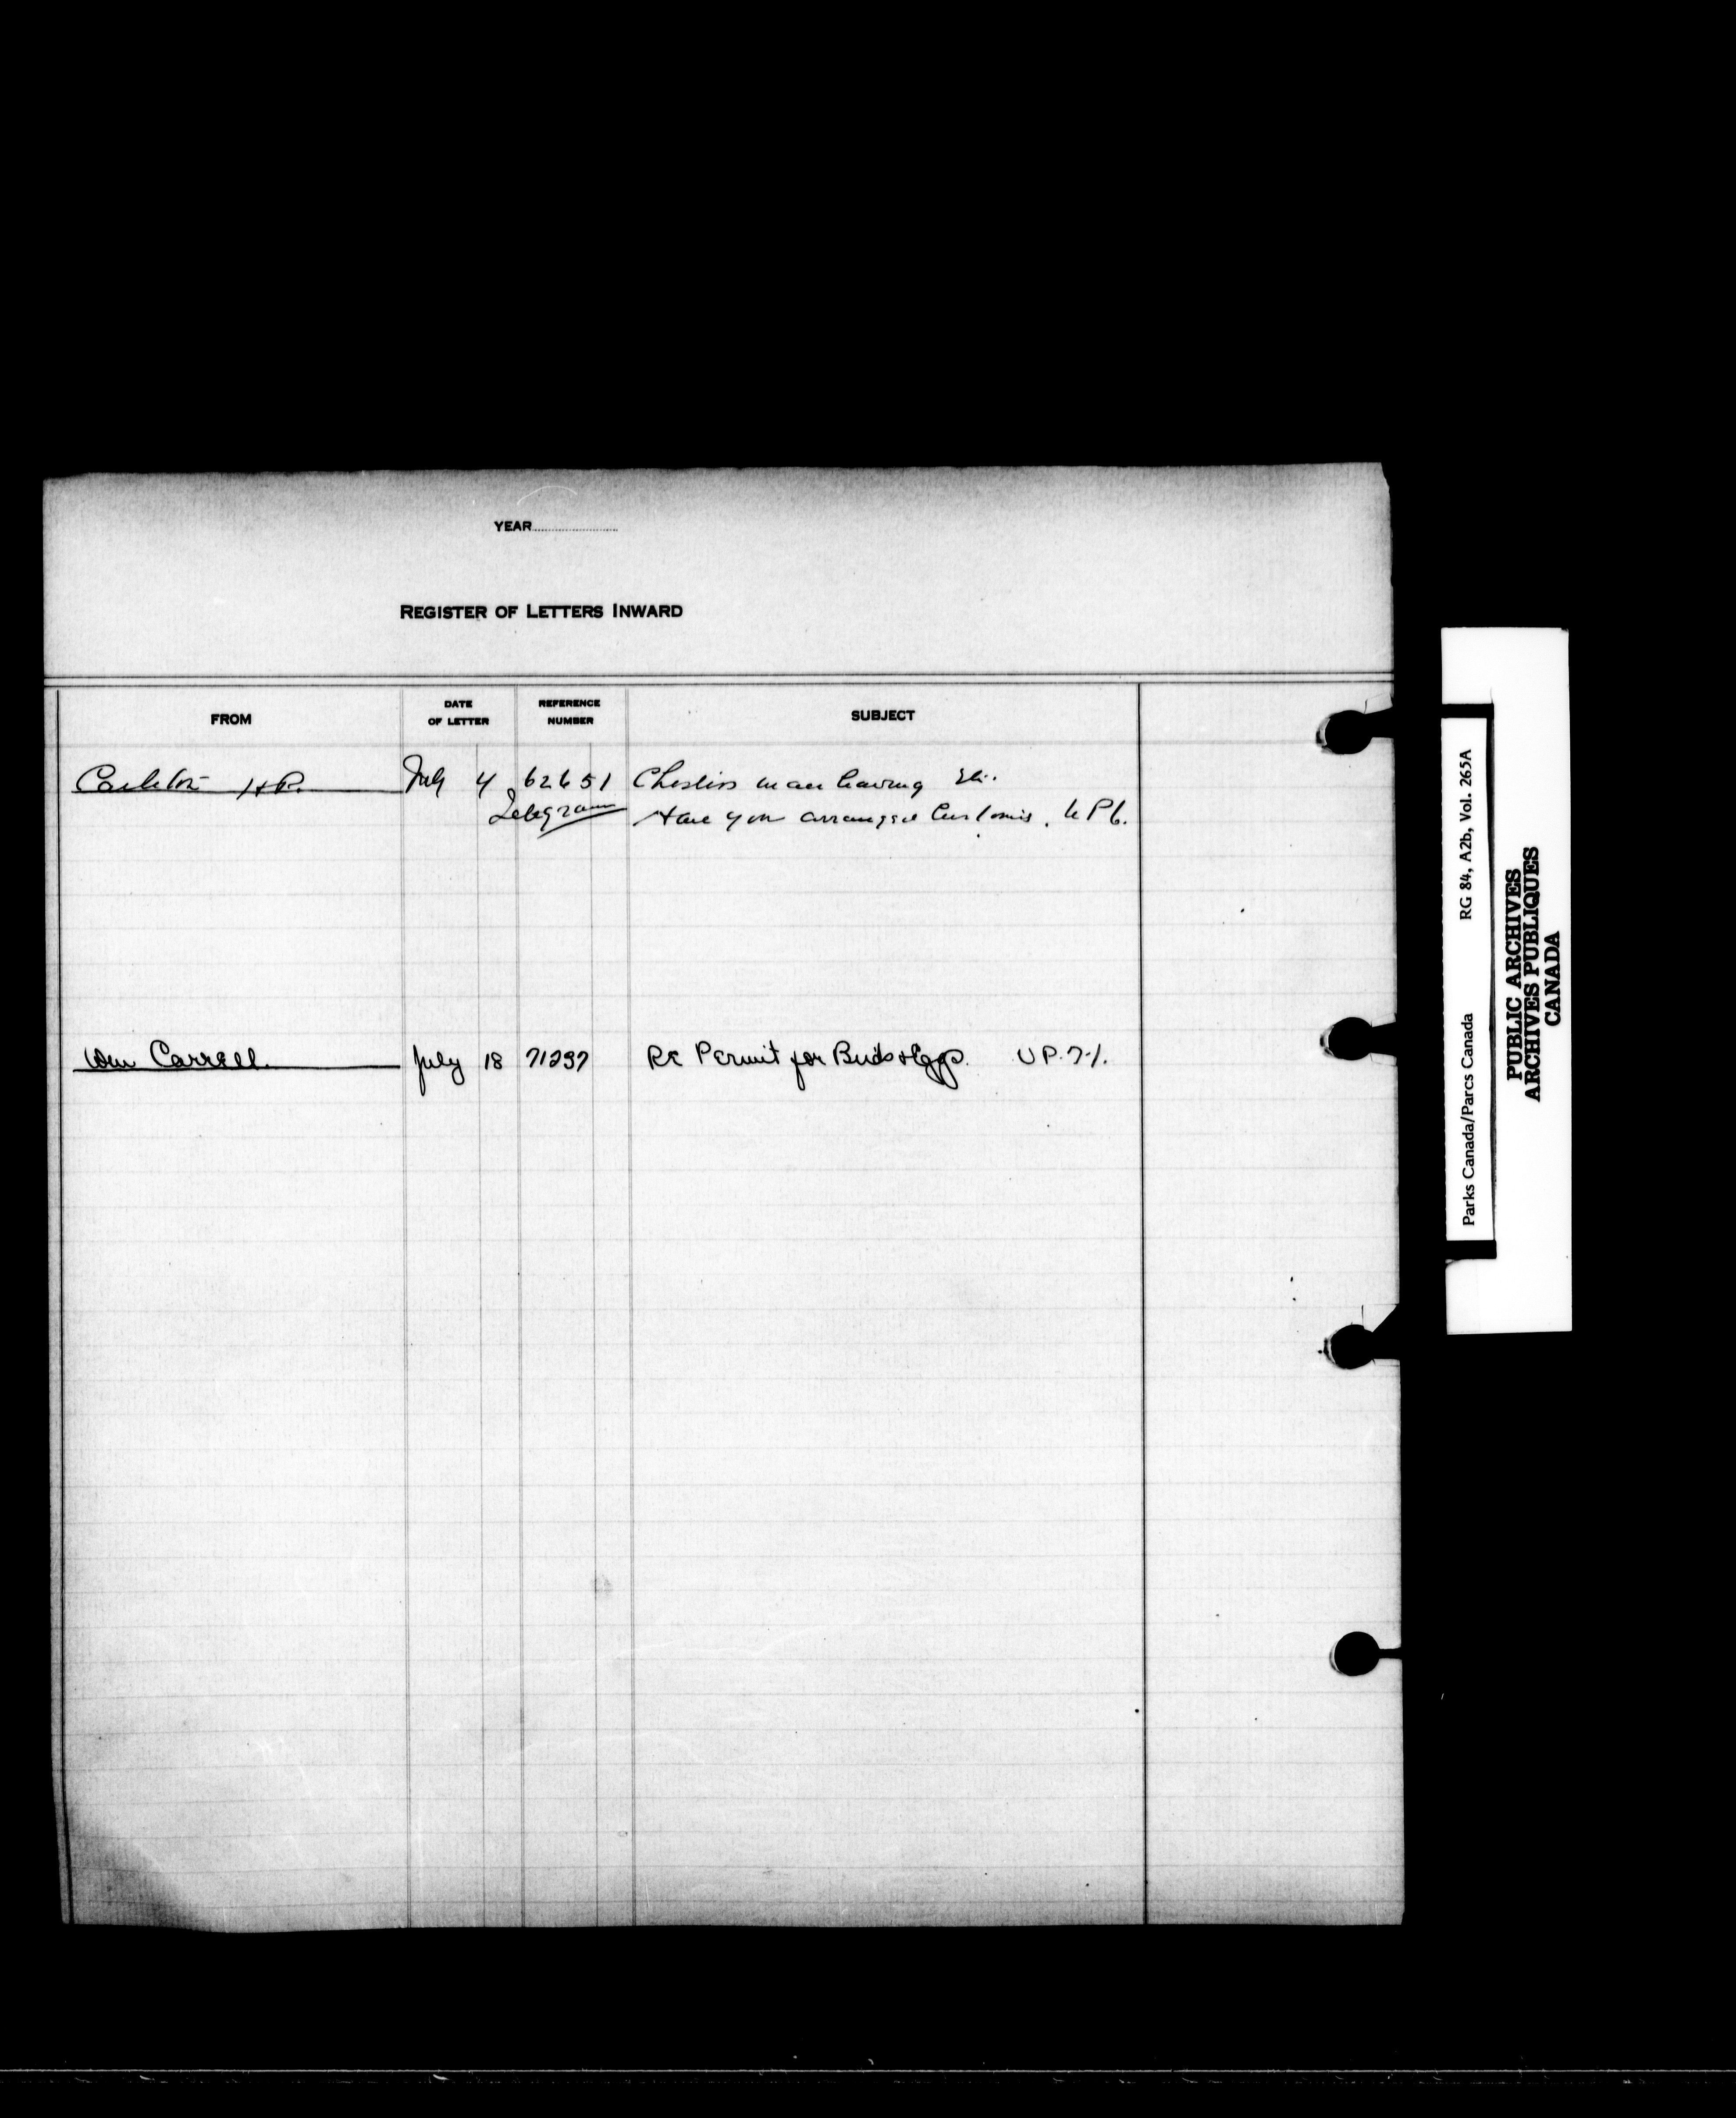 YEAR
REGISTER OF LETTERS INWARD
FROM DATE OF LETTER REFERENCE NUMBER SUBJECT
Carleton H.P. July 4 62651 man leaving
Telegram Have you arranged Customs. U P 6.
Wm Carrell. July 18 71237 RE Permit for Birds & Eggs. U P. 7-1.
Parks Canada/Parcs Canada RG 84, A2b, Vol. 265A
PUBLIC ARCHIVES
ARCHIVES PUBLIQUES
CANADA